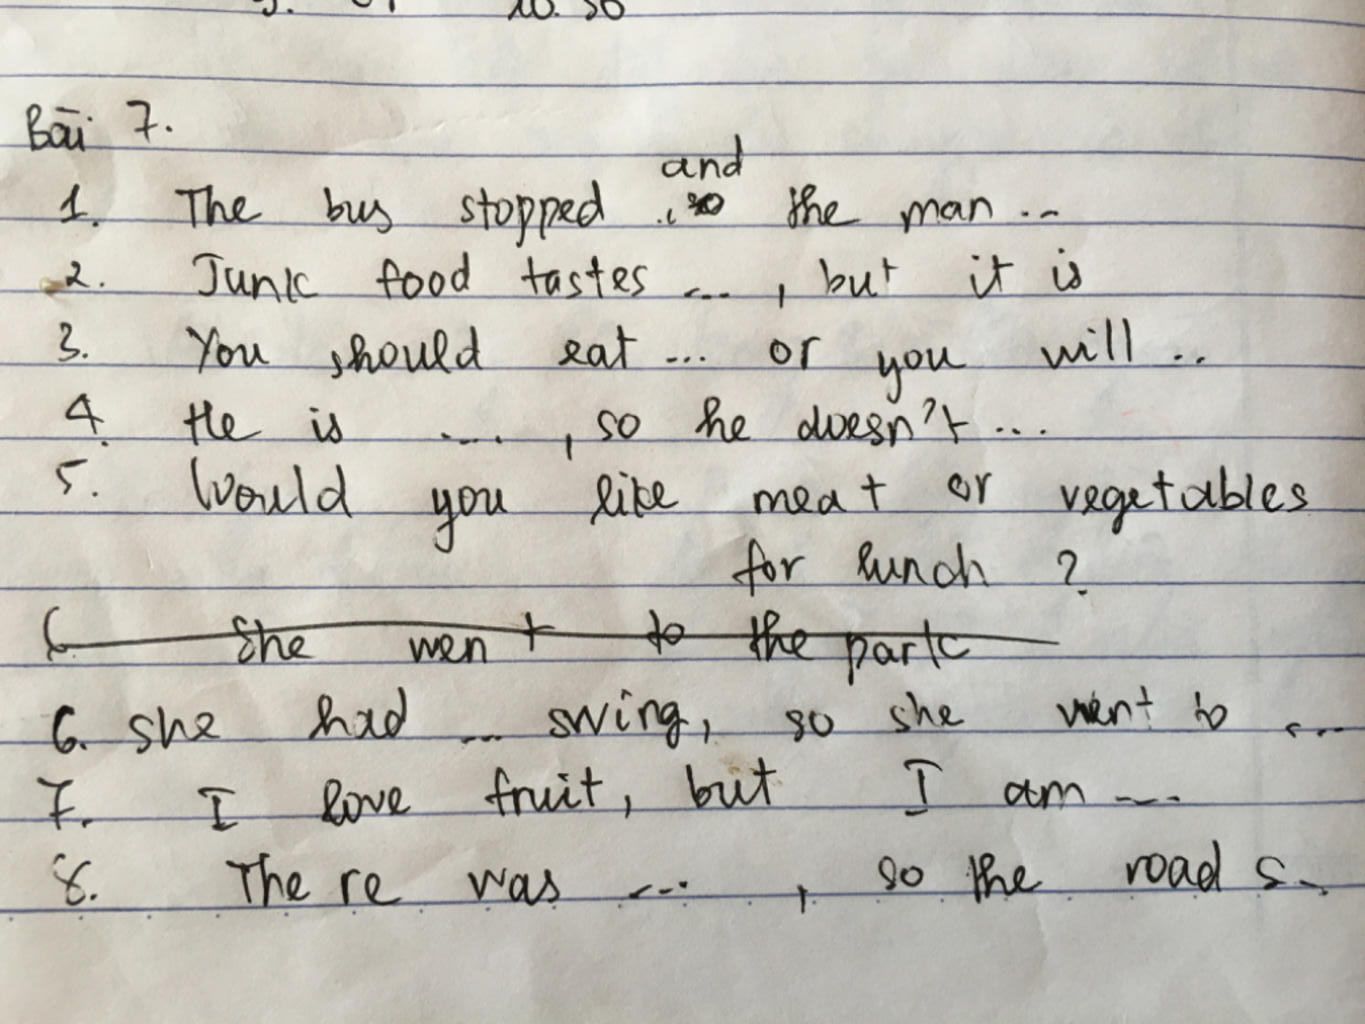 10. so
Bài 7.
and
1. The bus stopped .. so the man ..
2. Junk food tastes ..., but it is
3. You should eat ... or you will ..
4. He is ...., so he doesn't ...
5. Would you like meat or vegetables
for lunch ?
6. She went to the park
6. she had ... swing, so she went to ...
7. I love fruit, but I am ...
8. There was ... , so the road s..